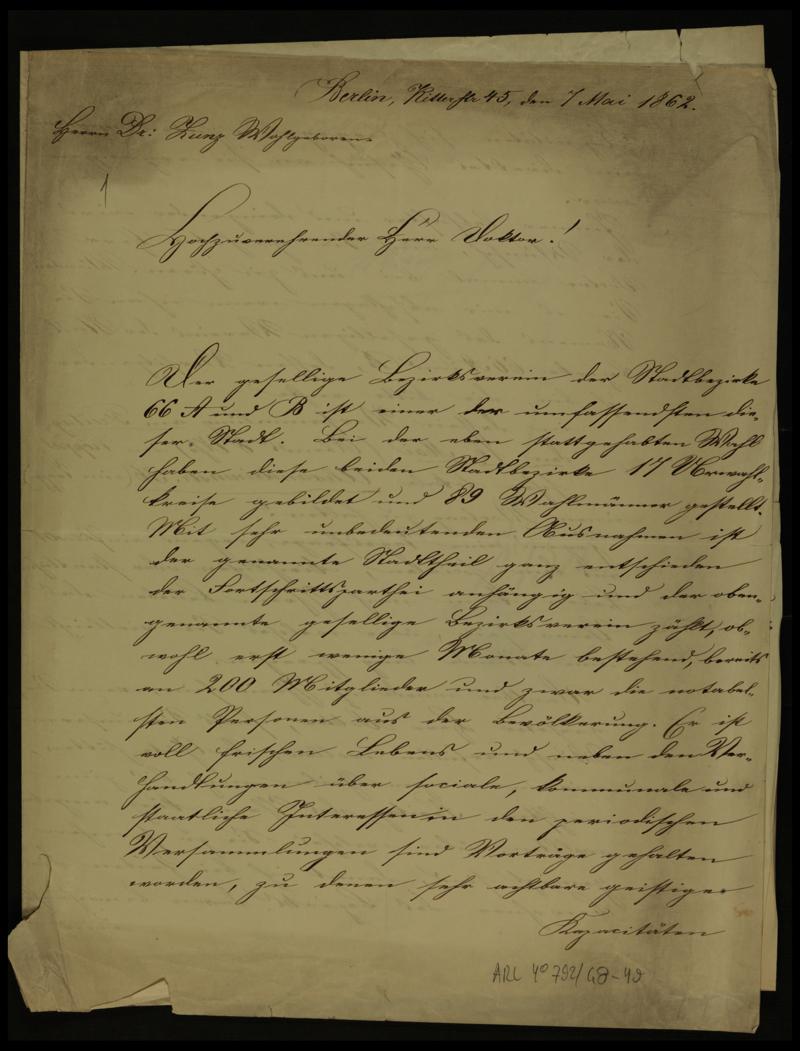 Berlin, Ritterstr 45, den 7 Mai 1862.
Herrn Dr: Zunz Wohlgeboren.
1
Hochzuverehrender Herr Doktor!
Der gesellige Bezirksverein der Stadtbezirke
66 A und B ist einer der umfassendsten die-
ser Stadt. Bei der eben stattgehabten Wahl
haben diese beiden Stadtbezirke 17 Urwahl-
kreise gebildet und 89 Wahlmänner gestellt.
Mit sehr unbedeutenden Ausnahmen ist
der genannte Stadttheil ganz entschieden
der Fortschrittsparthei anhängig und der oben-
genannte gesellige Bezirksverein zählt, ob-
wohl erst wenige Monate bestehend, bereits
an 200 Mitglieder und zwar die notabel-
sten Personen aus der Bevölkerung. Er ist
voll frischen Lebens und neben den Ver-
handlungen über sociale, kommunale und
staatliche Interessen in den periodischen
Versammlungen sind Vorträge gehalten
worden, zu denen sehr achtbare geistige
Kapacitäten
ARC 4° 792/G2-49